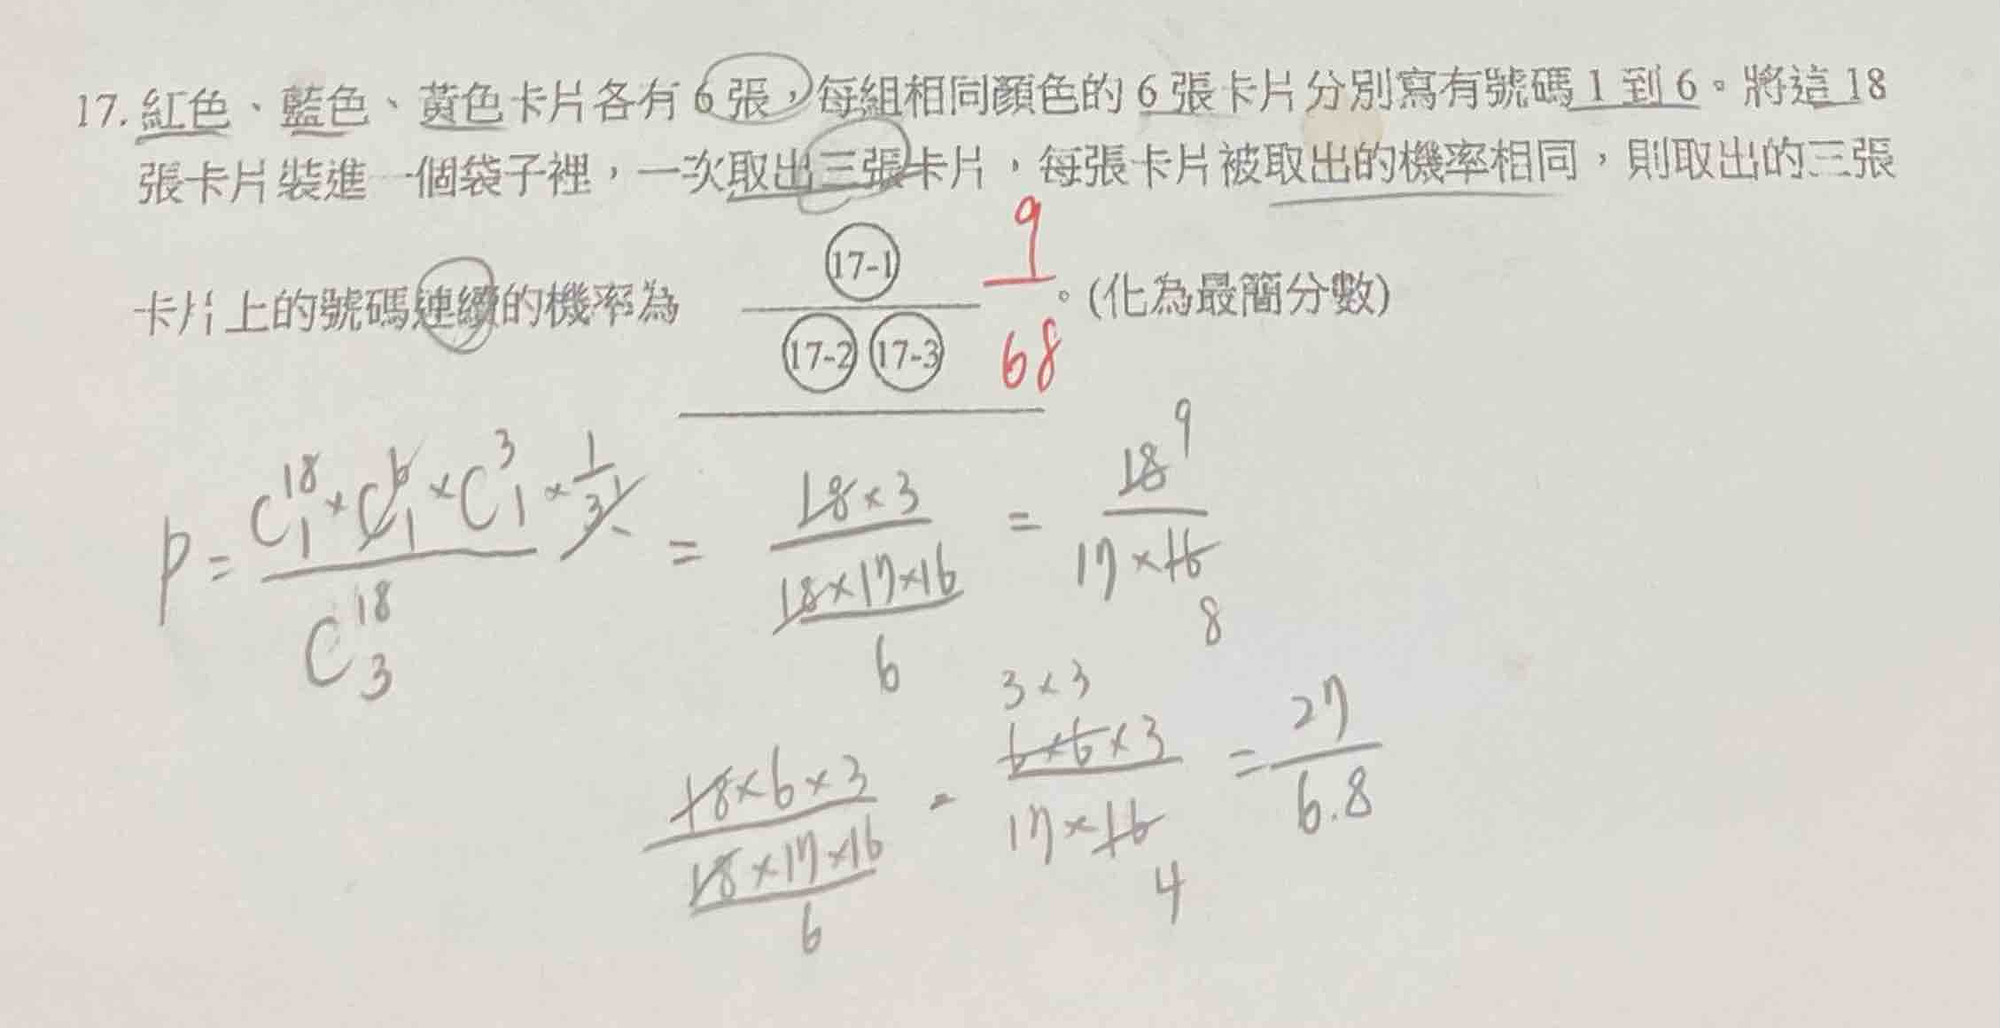 17. 紅色、藍色、黃色卡片各有 6 張,每組相同顏色的 6 張卡片分別寫有號碼 1 到 6。將這 18
張卡片裝進一個袋子裡,一次取出三張卡片,每張卡片被取出的機率相同,則取出的三張
卡片上的號碼連續的機率為 (17-1) / (17-2) (17-3) 9/68 。(化為最簡分數)
P = (C^18_1 × C^6_1 × C^3_1 × 1/3!) / C^18_3 = (18×3) / (18×17×16 / 6) = 18 9 / 17×16 8
(18×6×3) / (18×17×16 / 6) = 3×3 6×6×3 / 17×16 4 = 27 / 6.8